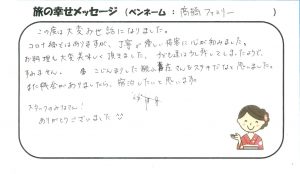 旅の幸せメッセージ（ペンネーム：高橋ファミリー）
この度は大変お世話になりました。
コロナ禍ではありますが、丁寧で優しい接客に心が和みました。
お料理も大変美味しく頂きました。子ども達は少し許してしまったようで、
すみません。
また機会がありましたら、宿泊したいと思います。
スタッフのみなさん!
ありがとうございました